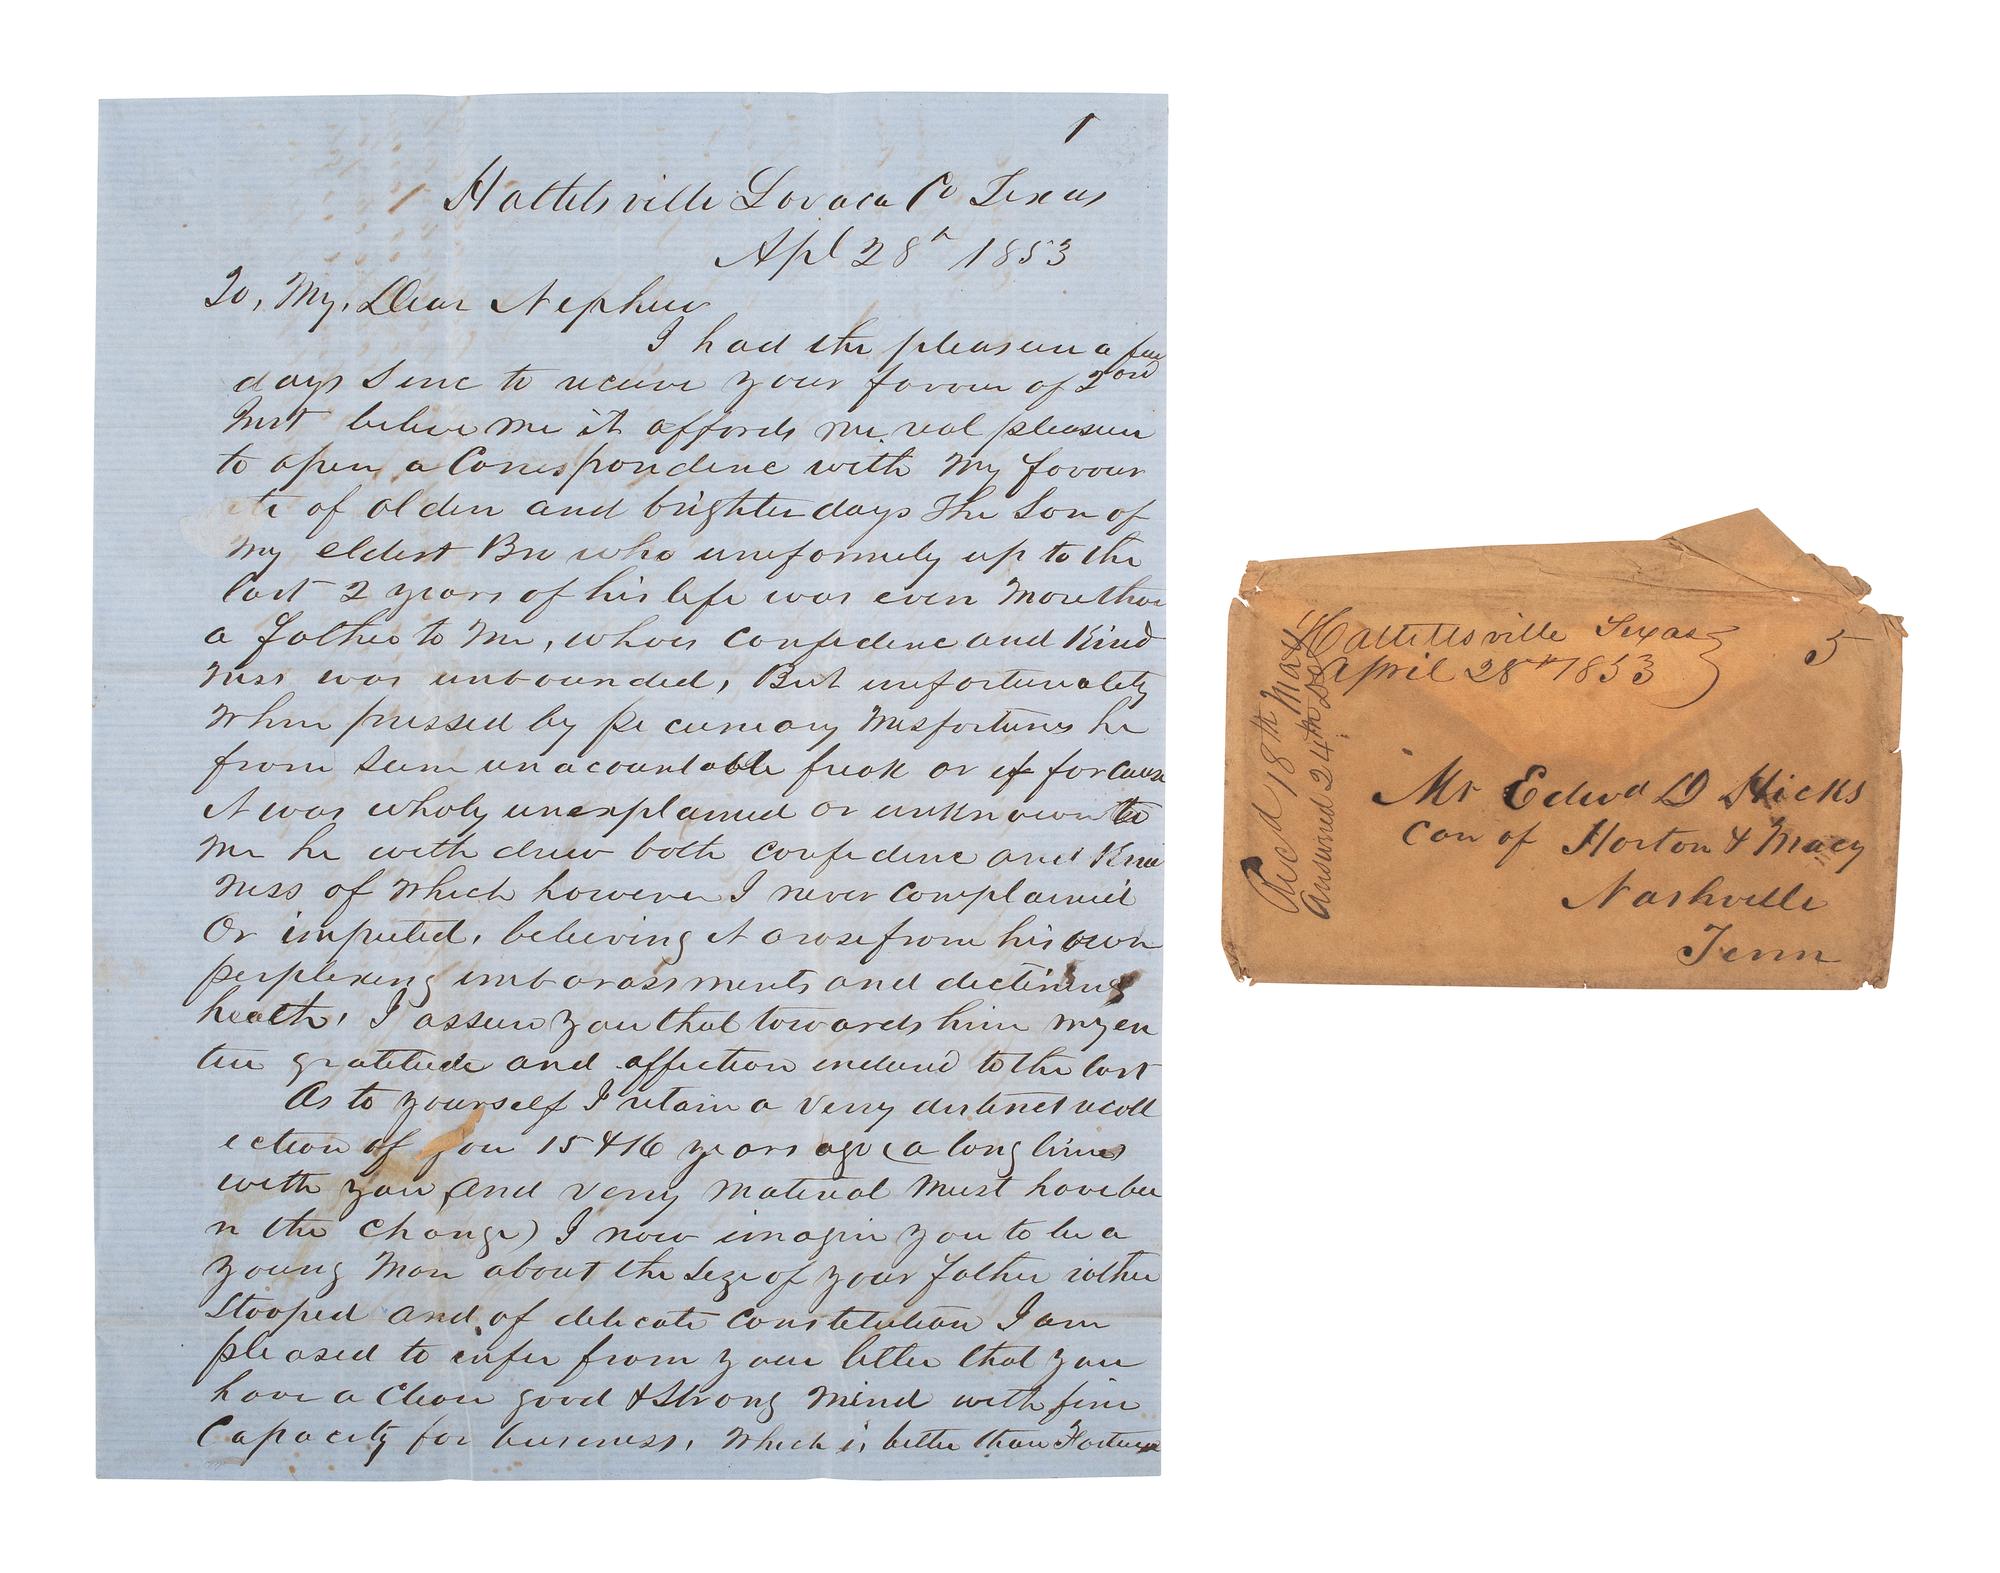 1
Hattelsville Lavaca Co Texas
Apl 28th 1853
To, My, Dear Nephew
I had the pleasure a few
days sinc to receive your favour of 2ond
Inst believe me it affords me real pleasure
to open a Correspondence with my favour
ite of olden and brighter days The Son of
my eldest Bro who uniformely up to the
last 2 years of his life was even more than
a father to me, whoes confidence and kind
ness was unbounded, But unfortunately
when pressed by pecuneary misfortunes he
from sum unacountable freak or if for cause
it was wholy unexplained or unknown to
me he with drew both confidence and kind
ness of which however I never complained
Or imputed, believing it arose from his own
perplexing imbarassments and declining
health, I assure you that towards him my en
tire gratitude and affection endured to the last
As to yourself I retain a very distinct recoll
ection of you 15 & 16 years ago (a long time
with you and very material must have bee
n the change) I now imagin you to be a
young man about the size of your father rather
stooped and of delicate constitution I am
pleased to infer from your letter that you
have a clear good & strong mind with fine
Capacity for business, which is better than Fortune
Hattettsville Texas
April 28th 1853
5
Recd 18th May
Answered 24th
Mr Edwd D Hicks
Care of Horton & Macy
Nashville
Tenn